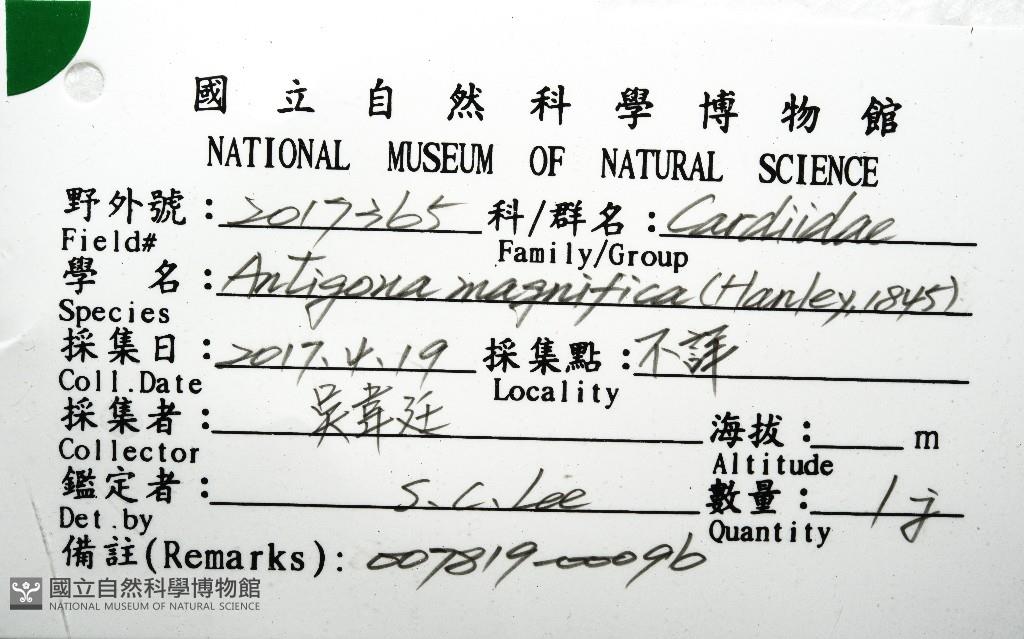 國立自然科學博物館
NATIONAL MUSEUM OF NATURAL SCIENCE
野外號：2017365 科/群名：Cardiidae
Field# Family/Group
學 名：Antigona magnifica (Hanley, 1845)
Species
採集日：2017.4.19 採集點：不詳
Coll.Date Locality
採集者：吳韋廷 海拔： m
Collector Altitude
鑑定者：S.C. Lee 數量：1j
Det.by Quantity
備註(Remarks)：007819-00096
國立自然科學博物館
NATIONAL MUSEUM OF NATURAL SCIENCE